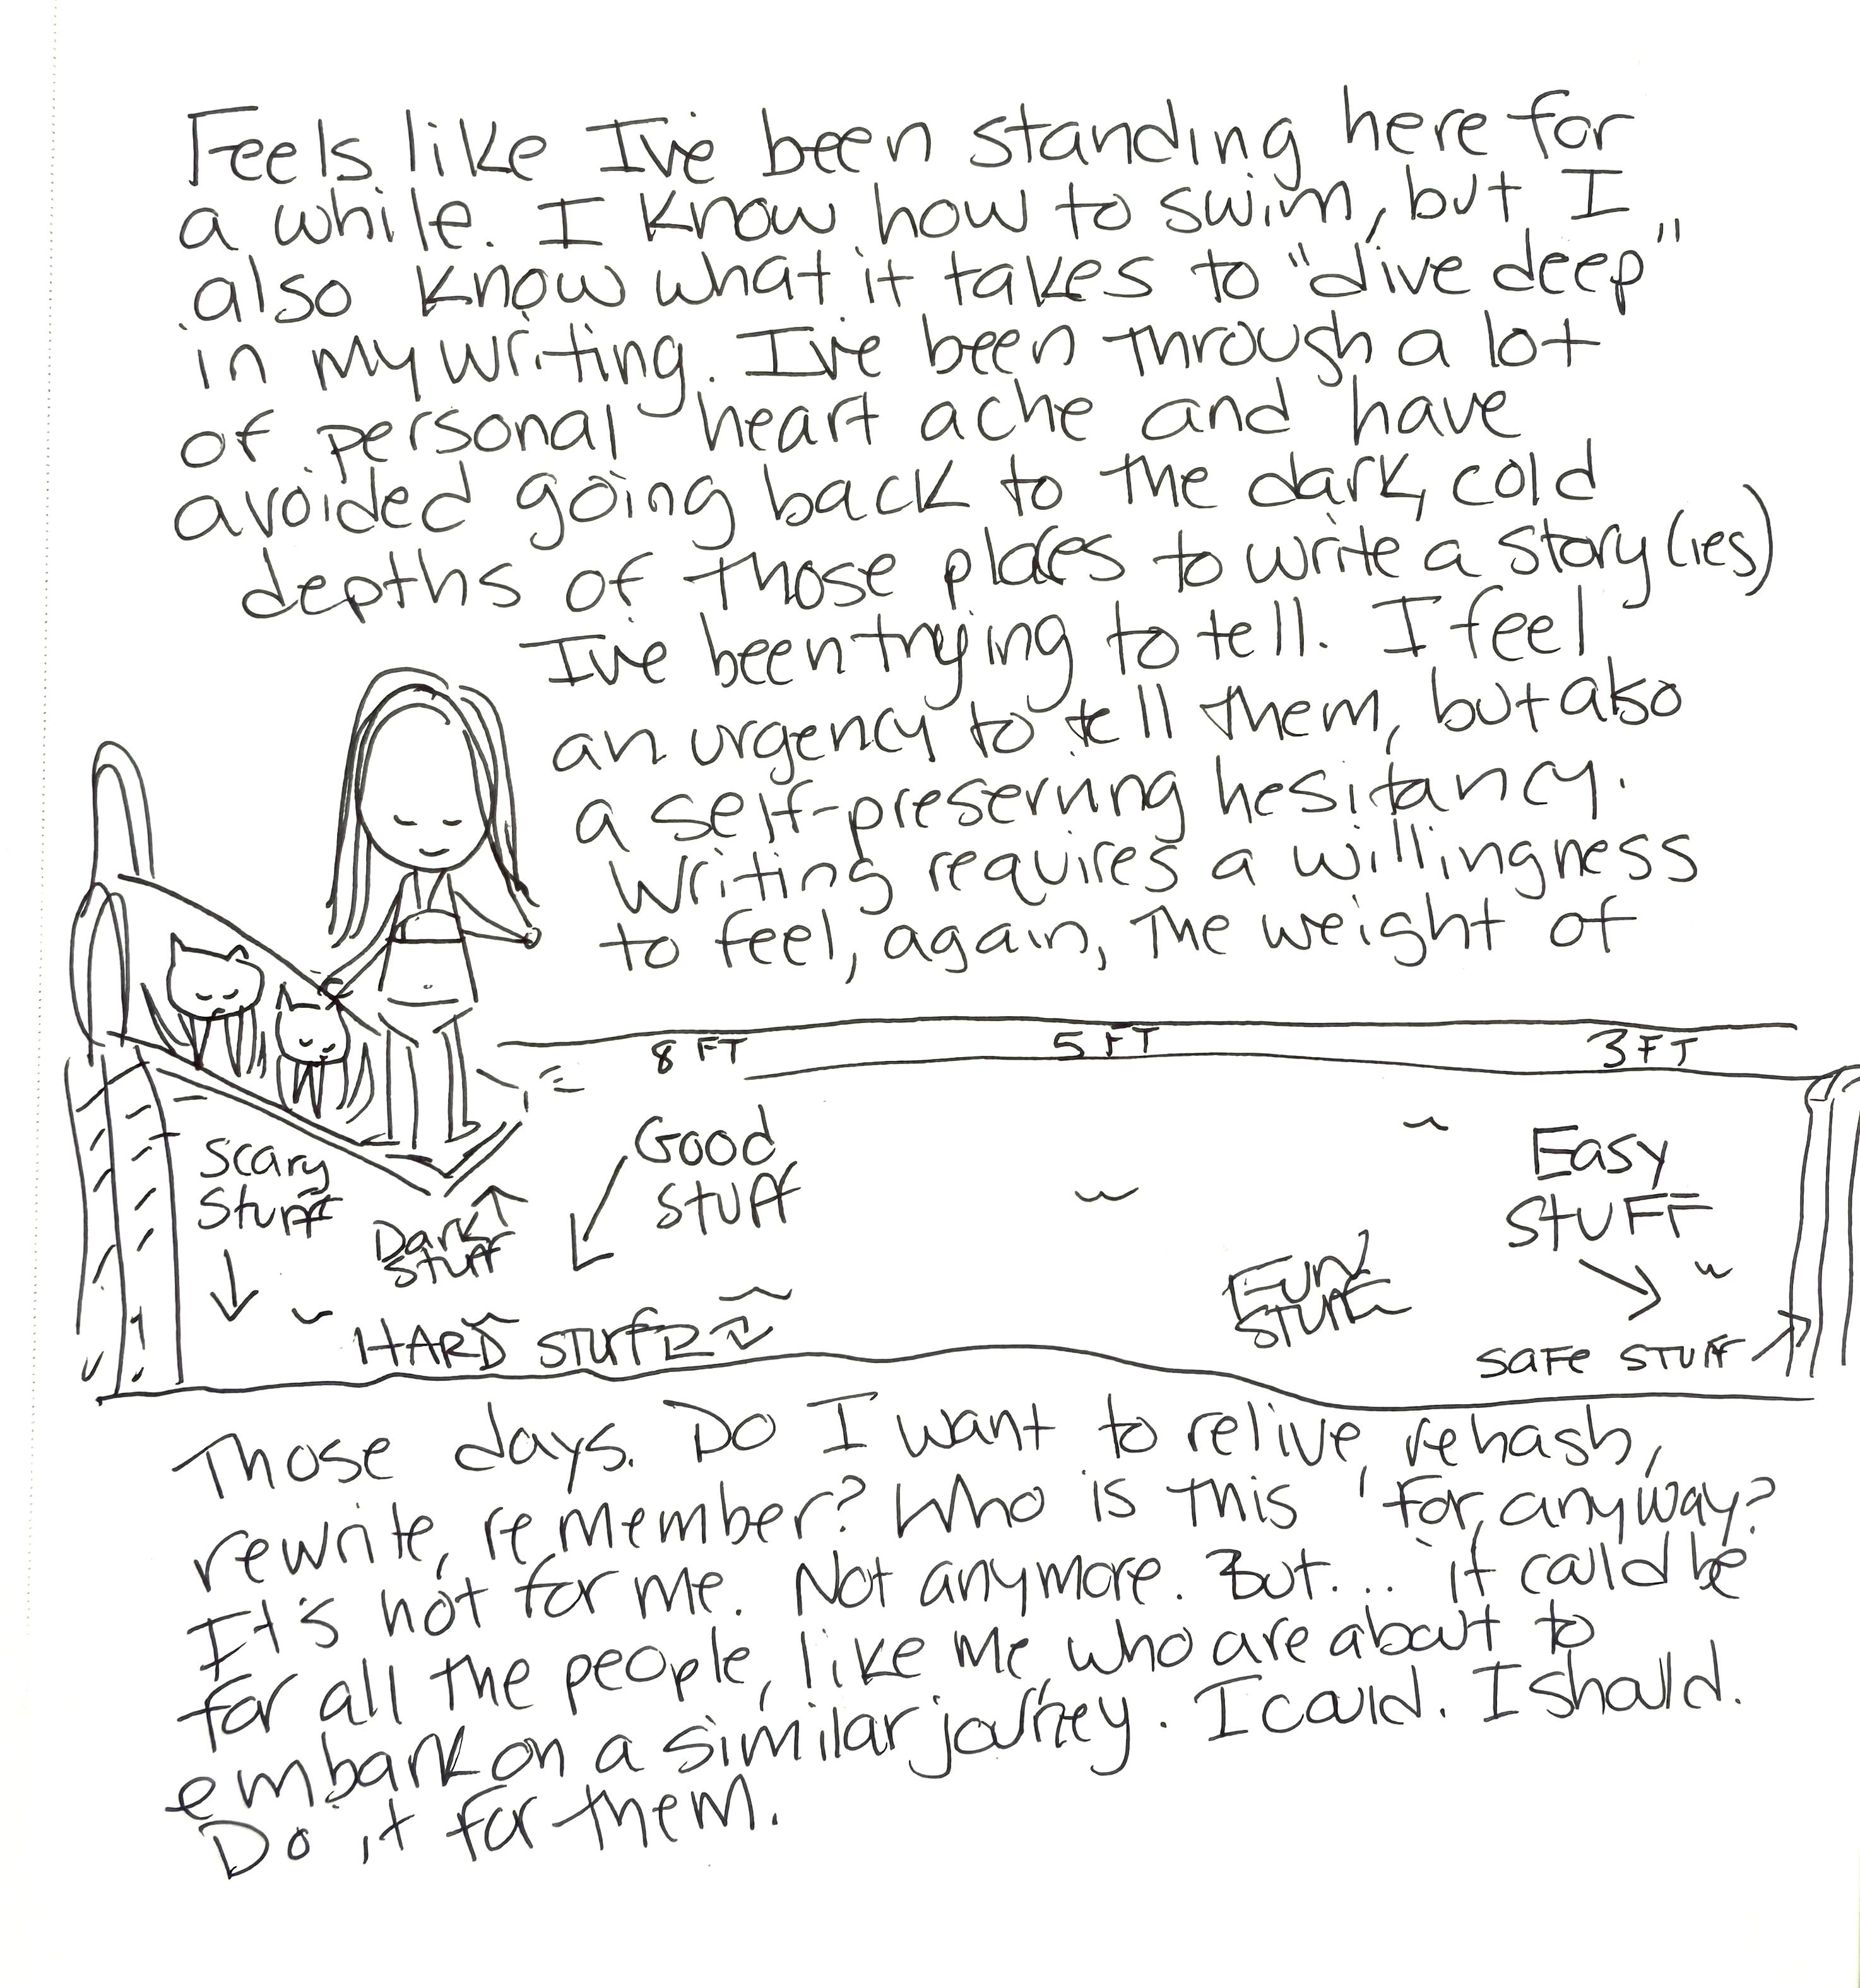 Feels like I've been standing here for
a while. I know how to swim, but I
also know what it takes to "dive deep"
in my writing. I've been through a lot
of personal heart ache and have
avoided going back to the dark, cold
depths of those places to write a story (ies)
I've been trying to tell. I feel
an urgency to tell them, but also
a self-preserving hesitancy.
Writing requires a willingness
to feel, again, the weight of
8 FT 5 FT 3 FT
Scary
Stuff
Dark
Stuff
Good
Stuff
Easy
STUFF
FUN
STUFF
HARD STUFF
SAFE STUFF
Those days. Do I want to relive, rehash,
rewrite, remember? Who is this for, anyway?
It's not for me. Not anymore. But... it could be
for all the people, like me who are about to
embark on a similar journey. I could. I should.
Do it for them.